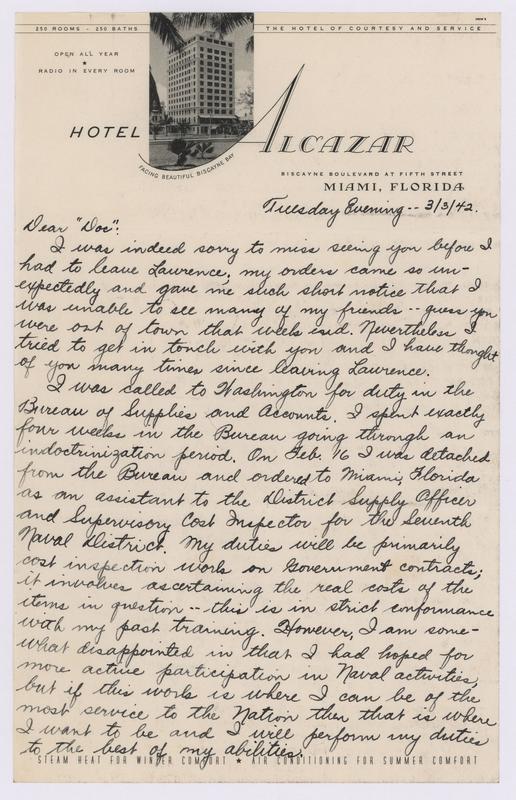 250 ROOMS - 250 BATHS
THE HOTEL OF COURTESY AND SERVICE
OPEN ALL YEAR
★
RADIO IN EVERY ROOM
HOTEL ALCAZAR
FACING BEAUTIFUL BISCAYNE BAY
BISCAYNE BOULEVARD AT FIFTH STREET
MIAMI, FLORIDA
Tuesday Evening -- 3/3/42.
Dear "Doc":
I was indeed sorry to miss seeing you before I
had to leave Lawrence; my orders came so un-
expectedly and gave me such short notice that I
was unable to see many of my friends -- guess you
were out of town that week end. Nevertheless I
tried to get in touch with you and I have thought
of you many times since leaving Lawrence.
I was called to Washington for duty in the
Bureau of Supplies and Accounts. I spent exactly
four weeks in the Bureau going through an
indoctrinization period. On Feb. 16 I was detached
from the Bureau and ordered to Miami, Florida
as an assistant to the District Supply Officer
and Supervisory Cost Inspector for the Seventh
Naval District. My duties will be primarily
cost inspection work on Government contracts;
it involves ascertaining the real costs of the
items in question -- this is in strict conformance
with my past training. However, I am some-
what disappointed in that I had hoped for
more active participation in Naval activities,
but if this work is where I can be of the
most service to the Nation then that is where
I want to be and I will perform my duties
to the best of my abilities.
STEAM HEAT FOR WINTER COMFORT ★ AIR CONDITIONING FOR SUMMER COMFORT